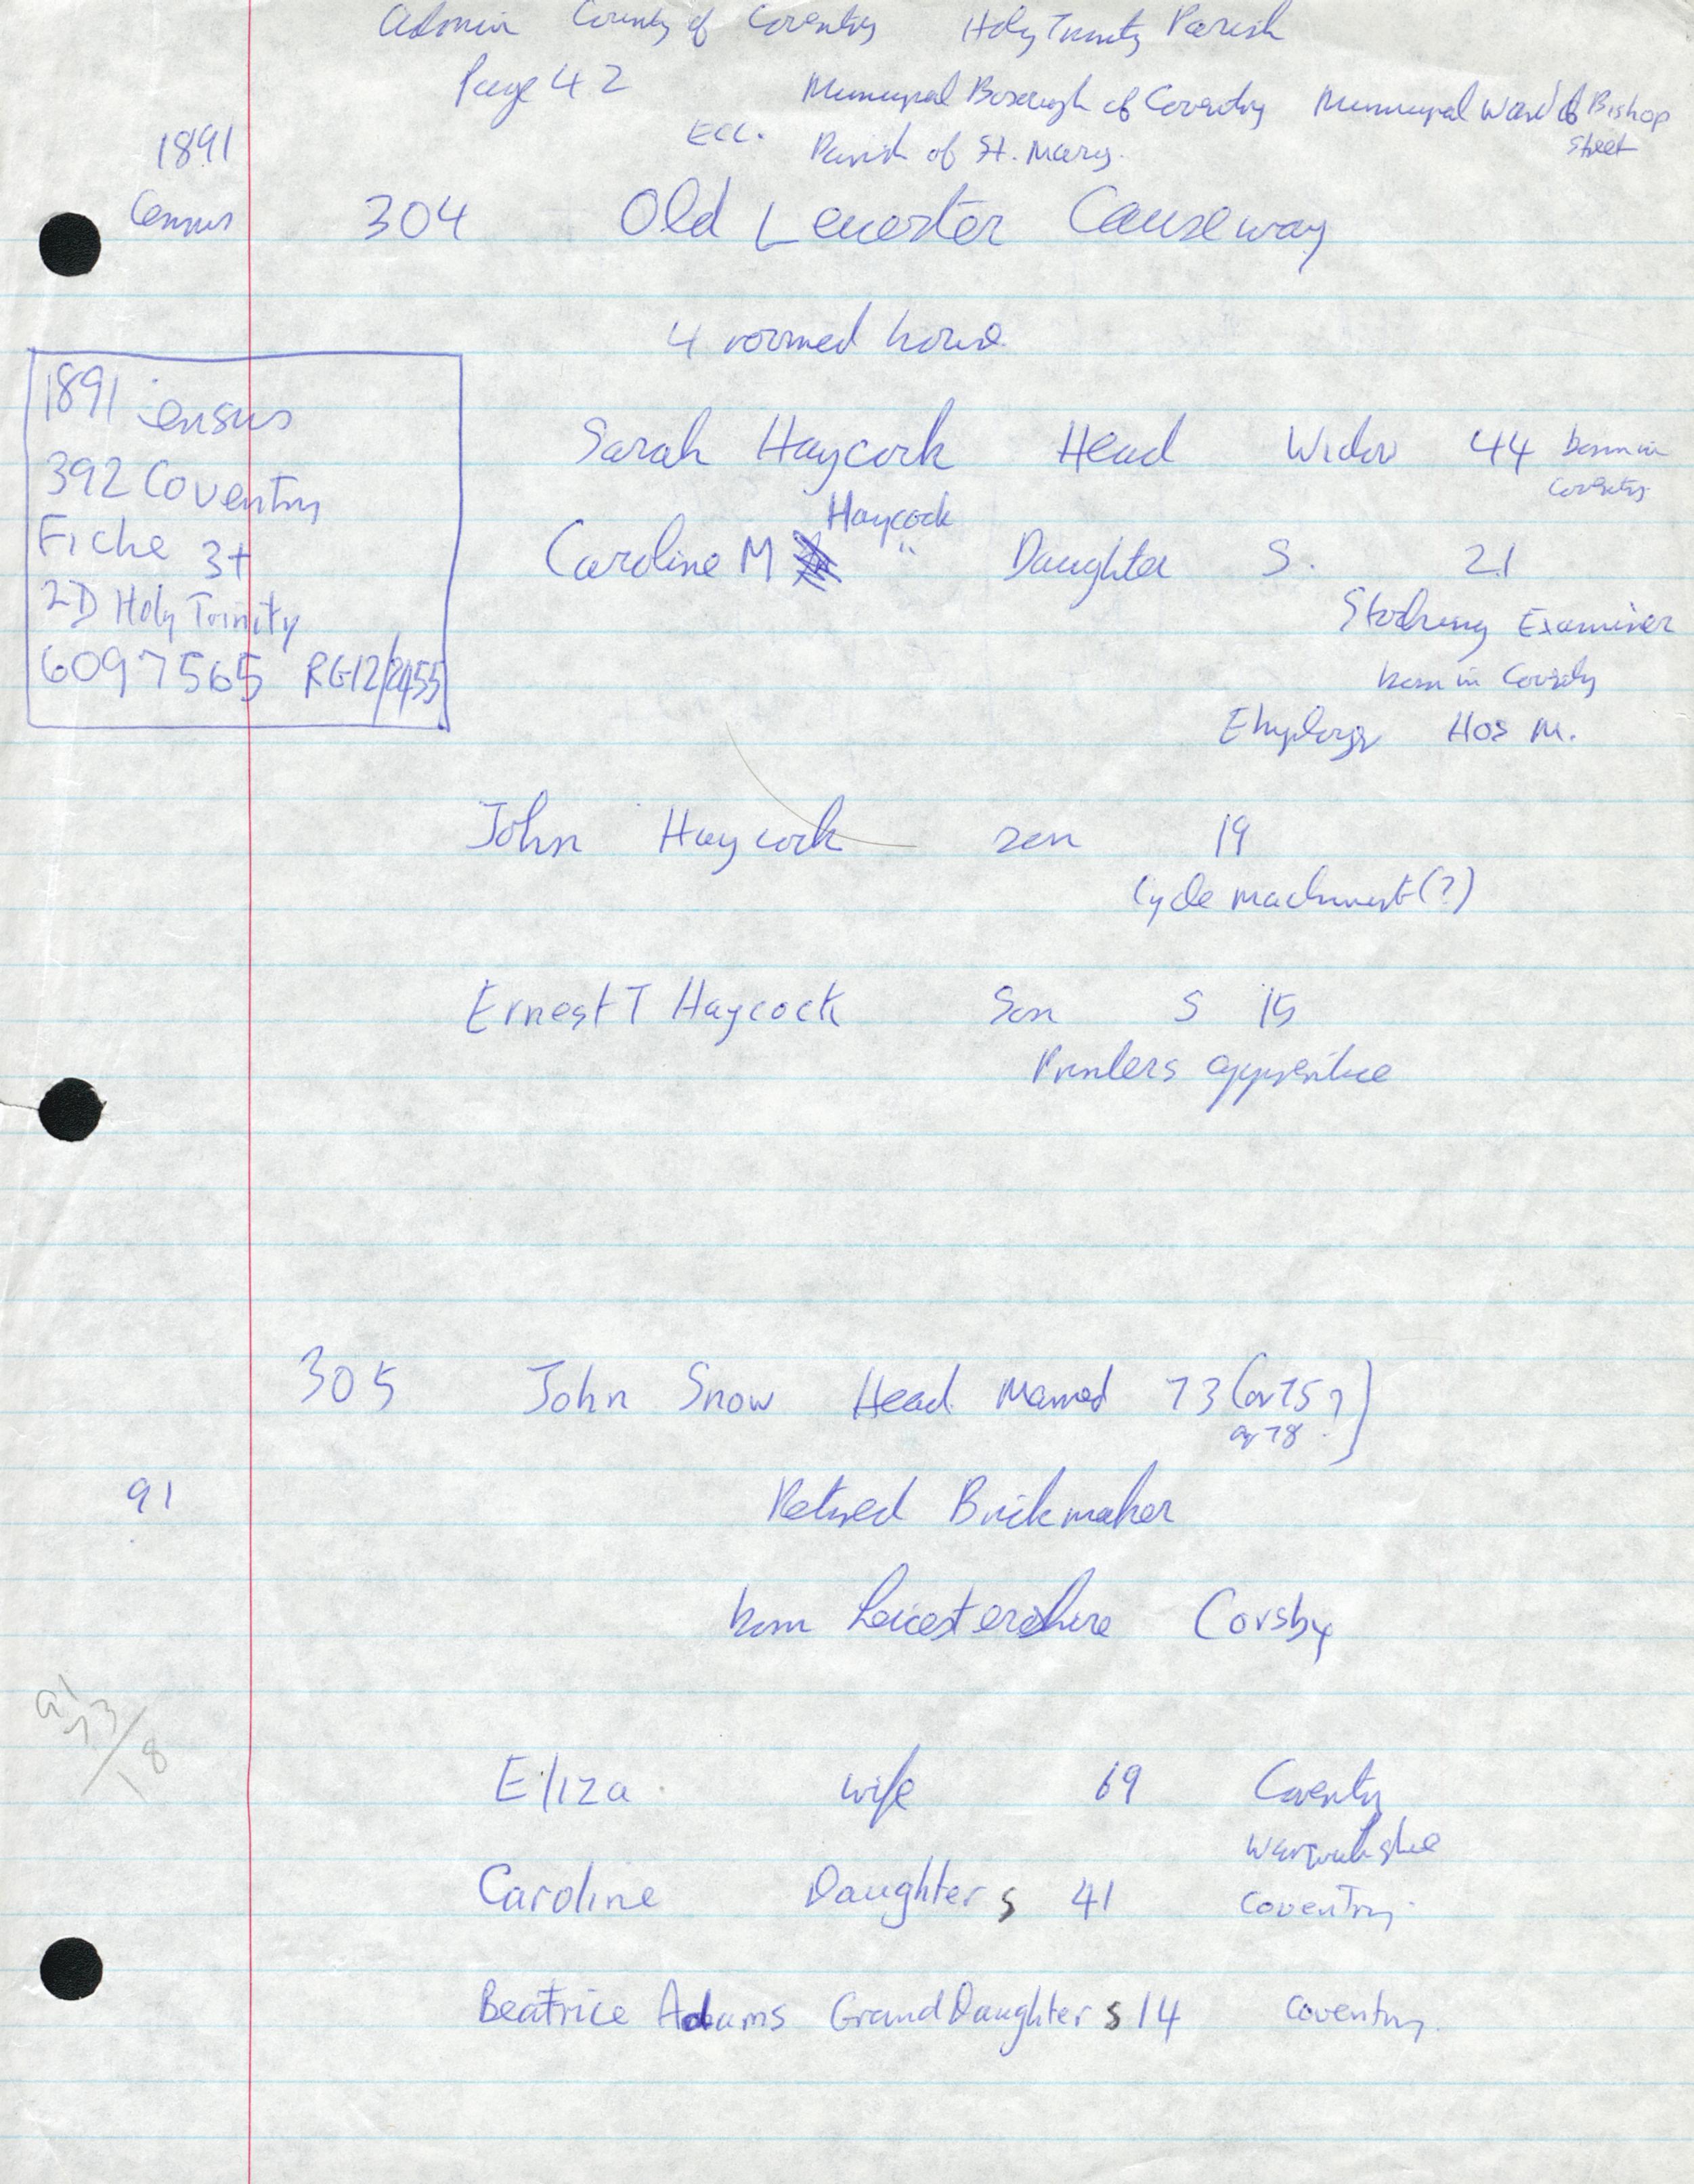 Admin County of Coventry Holy Trinity Parish
Page 42 Municipal Borough of Coventry Municipal Ward of Bishop Street
Ecc. Parish of St. Mary.
1891 Census
304 Old Leicester Causeway
4 roomed house
1891 Census
392 Coventry
Fiche 3+
2D Holy Trinity
6097565 RG12/2455
Sarah Haycock Head Widow 44 born in Coventry
Haycock
Caroline M " Daughter S. 21
Stocking Examiner
born in Coventry
Employer Hos M.
John Haycock son 19
Cycle machinist (?)
Ernest T Haycock Son S 15
Printers apprentice
305 John Snow Head Married 73 (or 75?
or 78?)
91 Retired Brickmaker
born Leicestershire Corsby
91
73
18
Eliza wife 69 Coventry
Warwickshire
Caroline Daughter S 41 Coventry
Beatrice Adams GrandDaughter S 14 Coventry